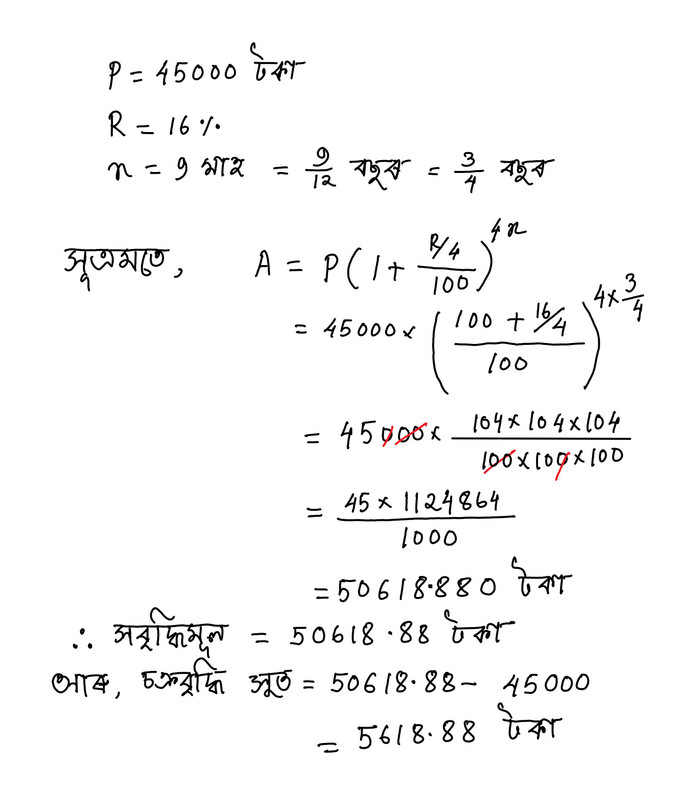 P = 45000 টকা
R = 16%
n = 9 মাহ = 9/12 বছৰ = 3/4 বছৰ
সূত্ৰমতে, A = P(1 + (R/4)/100)^4n
= 45000 × ((100 + 16/4)/100)^(4×3/4)
= 45000 × (104×104×104)/(100×100×100)
= (45 × 1124864)/1000
= 50618.880 টকা
∴ সবৃদ্ধিমূল = 50618.88 টকা
আৰু, চক্ৰবৃদ্ধি সুত = 50618.88 - 45000
= 5618.88 টকা